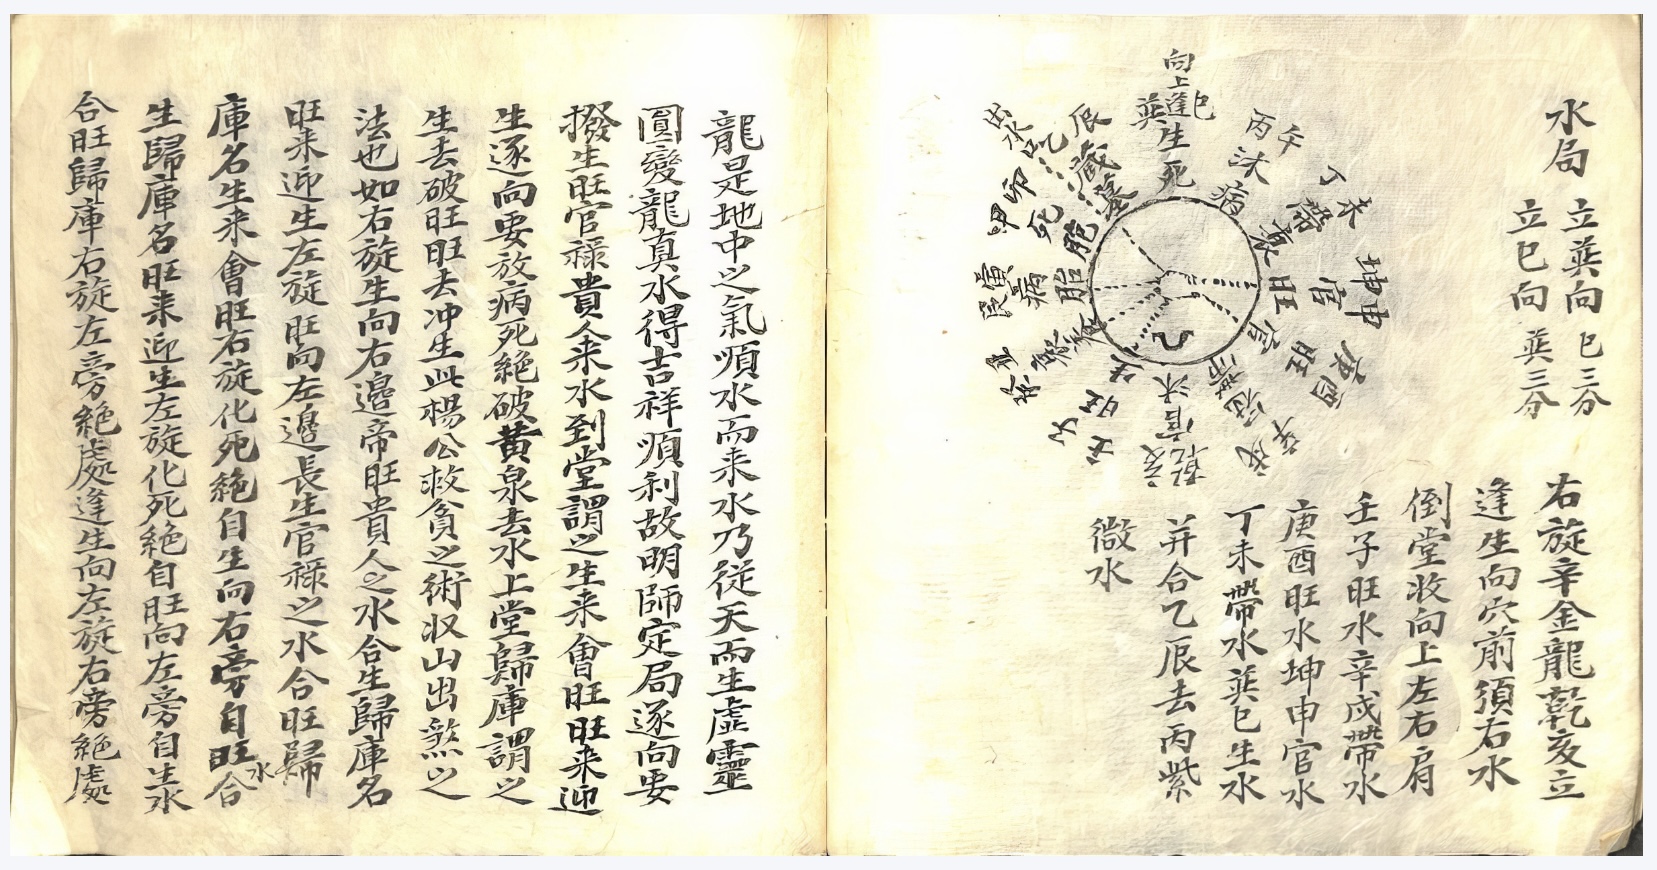 水局
立巽向 巳三分
立巳向 巽三分
右旋辛金龍乾亥立
逢生向穴前須右水
倒堂收向上左右肩
壬子旺水辛戌帶水
庚酉旺水坤申官水
丁未帶水巽巳生水
并合乙辰去丙紫
微水
向上逢生死
巽巳
丙午
沐病
丁未
帶衰
坤申
官旺
庚酉
旺官
辛戌
衰冠帶
乾亥
官沐
壬子
旺生
艮寅
病胎
甲卯
死胞
乙辰
藏墓
出水
龍是地中之氣順水而来水乃從天而生虛靈
圓變龍真水得吉祥順利故明師定局遂向要
撥生旺官祿貴人来水到堂謂之生来會旺旺来迎
生逐向要放病死絕破黄泉去水上堂歸庫謂之
生去破旺旺去冲生此楊公救貧之術収山出煞之
法也如右旋生向右邊帝旺貴人之水合生歸庫名
旺来迎生左旋旺向左邊長生官祿之水合旺歸
庫名生来會旺右旋化死絕自生向右旁自旺水合
生歸庫名旺来迎生左旋化死絕自旺向左旁自生水
合旺歸庫右旋左旁絕處逢生向左旋右旁絕處